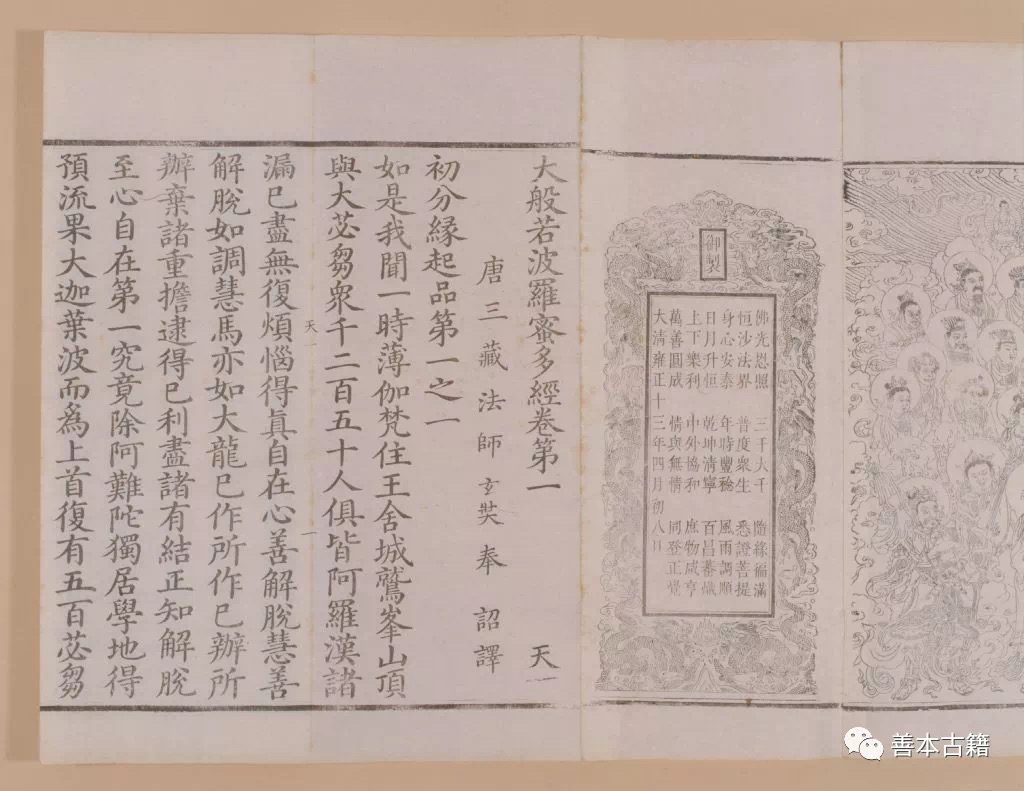 御製
佛光恩照 三千大千 隨緣徧滿
恒沙法界 普度衆生 悉證菩提
身心安泰 年時豐稔 風雨調順
日月升恒 乾坤清寧 百昌蕃熾
上下樂利 中外協和 庶物咸亨
萬善圓成 情與無情 同登正覺
大清雍正十三年四月初八日
大般若波羅蜜多經卷第一 天一
唐三藏法師玄奘奉 詔譯
初分緣起品第一之一
如是我聞一時薄伽梵住王舍城鷲峯山頂
與大苾芻衆千二百五十人俱皆阿羅漢諸
天一 一
漏已盡無復煩惱得眞自在心善解脫慧善
解脫如調慧馬亦如大龍已作所作已辦所
辦棄諸重擔逮得已利盡諸有結正知解脫
至心自在第一究竟除阿難陀獨居學地得
預流果大迦葉波而爲上首復有五百苾芻
善本古籍